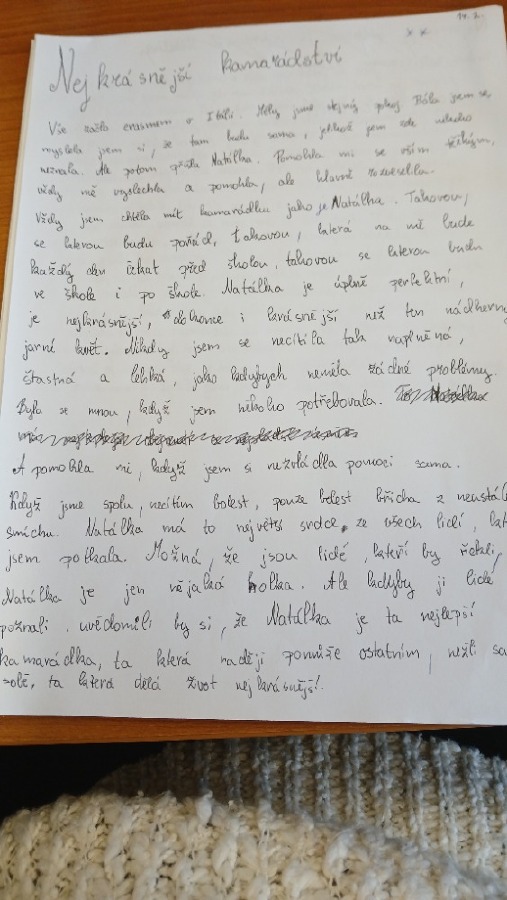 14. 2.
x x
Nejkrásnější kamarádství
Vše začlo erasmem v Itálii. Měly jsme stejný pokoj. Bála jsem se,
myslela jsem si, že tam budu sama, jelikož jsem zde nikoho
neznala. Ale potom přišla Natálka. Pomohla mi se vším těžkým,
vždy mě vyslechla a pomohla, ale hlavně rozveselila.
Vždy jsem chtěla mít kamarádku jako je Natálka. Takovou,
se kterou budu pořád, takovou, která na mě bude
každý den čekat před školou, takovou se kterou budu
ve škole i po škole. Natálka je úplně perfektní,
je nejkrásnější, dokonce i krásnější než ten nádherný
jarní květ. Nikdy jsem se necítila tak naplněná,
šťastná a lehká, jako kdybych neměla žádné problémy.
Byla se mnou, když jsem někoho potřebovala.
A pomohla mi, když jsem si nezvládla pomoci sama.
Když jsme spolu, necítím bolest, pouze bolest břicha z neustál
smíchu. Natálka má to největší srdce, ze všech lidí, kte
jsem potkala. Možná, že jsou lidé, kteří by řekli,
Natálka je jen nějaká holka. Ale kdyby ji lidé
poznali, uvědomili by si, že Natálka je ta nejlepší
kamarádka, ta která raději pomůže ostatním, nežli sa
sobě, ta která dělá život nejkrásnější!